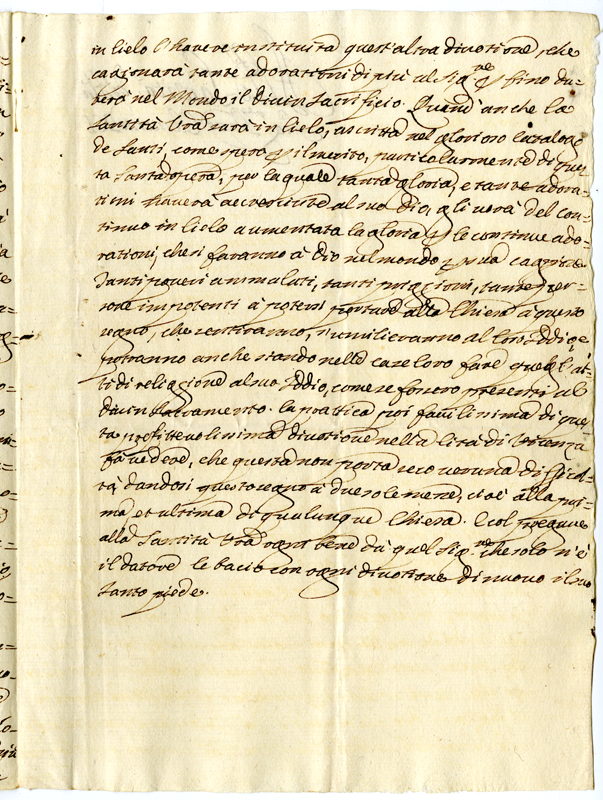 in Cielo l'havere instituita quest'altra divotione, che
cagionarà tante adorationi di più al Sig.re p fino du-
rerà nel Mondo il divin Sacrificio. Quand'anche la
Santità Vra sarà in Cielo, ascritta nel glorioso Catalogo
de Santi, come spero p il merito, particolarmente di que-
ta Santa opera, per la quale tanta gloria, e tante adora-
tioni haverà accresciute al suo Dio, gli verà del con-
tinuo in Cielo aumentata la gloria p le continue ado-
rationi, che si faranno à Dio nel mondo p sua cagione.
Tanti poveri ammalati, tanti prigioni, tante per-
sone impotenti à potersi portare alla Chiesa à questo
segno, che sentiranno, s'umilieranno al loro Iddio, e
potranno anche stando nelle case loro fare quegl'at-
ti di religione al suo Iddio, come se fossero presenti al
divin Sacramento. La prattica poi facilissima di que-
ta profittevolissima divotione nella Cità di Vicenza
fà vedere, che questa non porta seco veruna difficol-
tà, dandosi questo segno à due sole messe, cioè alla pri-
ma, et ultima di qualunque Chiesa. E col pregare
alla Santità Vra ogni bene da quel Sig.re che solo n'è
il datore le bacio con ogni divotione di nuovo il suo
Santo piede.